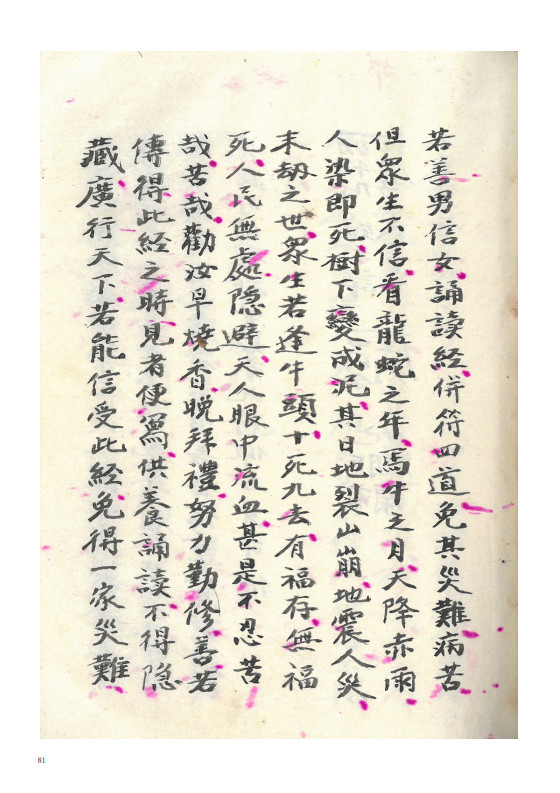 若善男信女誦讀經併符四道免其災難病苦
但眾生不信看龍蛇之年馬牛之月天降赤雨
人染即死樹下變成泥其日地裂山崩地震人災
末劫之世眾生若逢牛頭十死九去有福存無福
死人民無處隐避天人眼中流血甚是不忍苦
哉苦哉勸汝早燒香晚拜禮努力勤修善若
傳得此經之時見者便寫供養誦讀不得隐
藏廣行天下若能信受此經免得一家災難
81